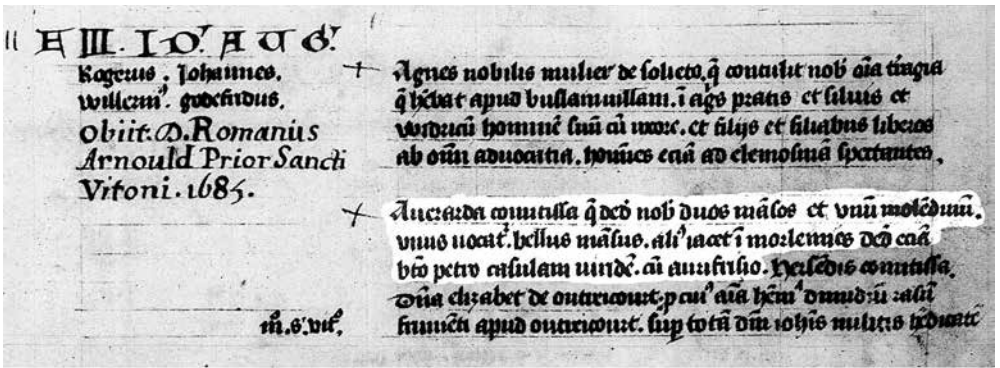 A III. ID' AUG'
Rogerus. Johannes.
Willerm'. godefridus.
Obiit. D. Romanus
Arnould Prior Sancti
Vitoni. 1685.
m̄. s. vit'.
Agnes nobilis mulier de solieto. q̄ contulit nob̄ oīa
q̄ hēbat apud bullamuillam. ī agīs pratis et siluis et
hominē suū cū uxore. et filijs et filiabus liberos
ab omī aduocatia. homīes eciā ad elemosinā spectantes.
Auerarda comitissa q̄ dedᵗ nob̄ duos māsos et vnū molēdinū.
vnus uocat̄. bellus māsus. ali' iacet ī morlennes dedᵗ eciā
bt̄o petro casulam uiridē. cū aurifrisio. Hersēdis comitissa.
Dn̄a elizabet de outricourt. p cui' aīa hēm'
frumēti apud outricourt. sup totā dm̄ ioh̄is militis